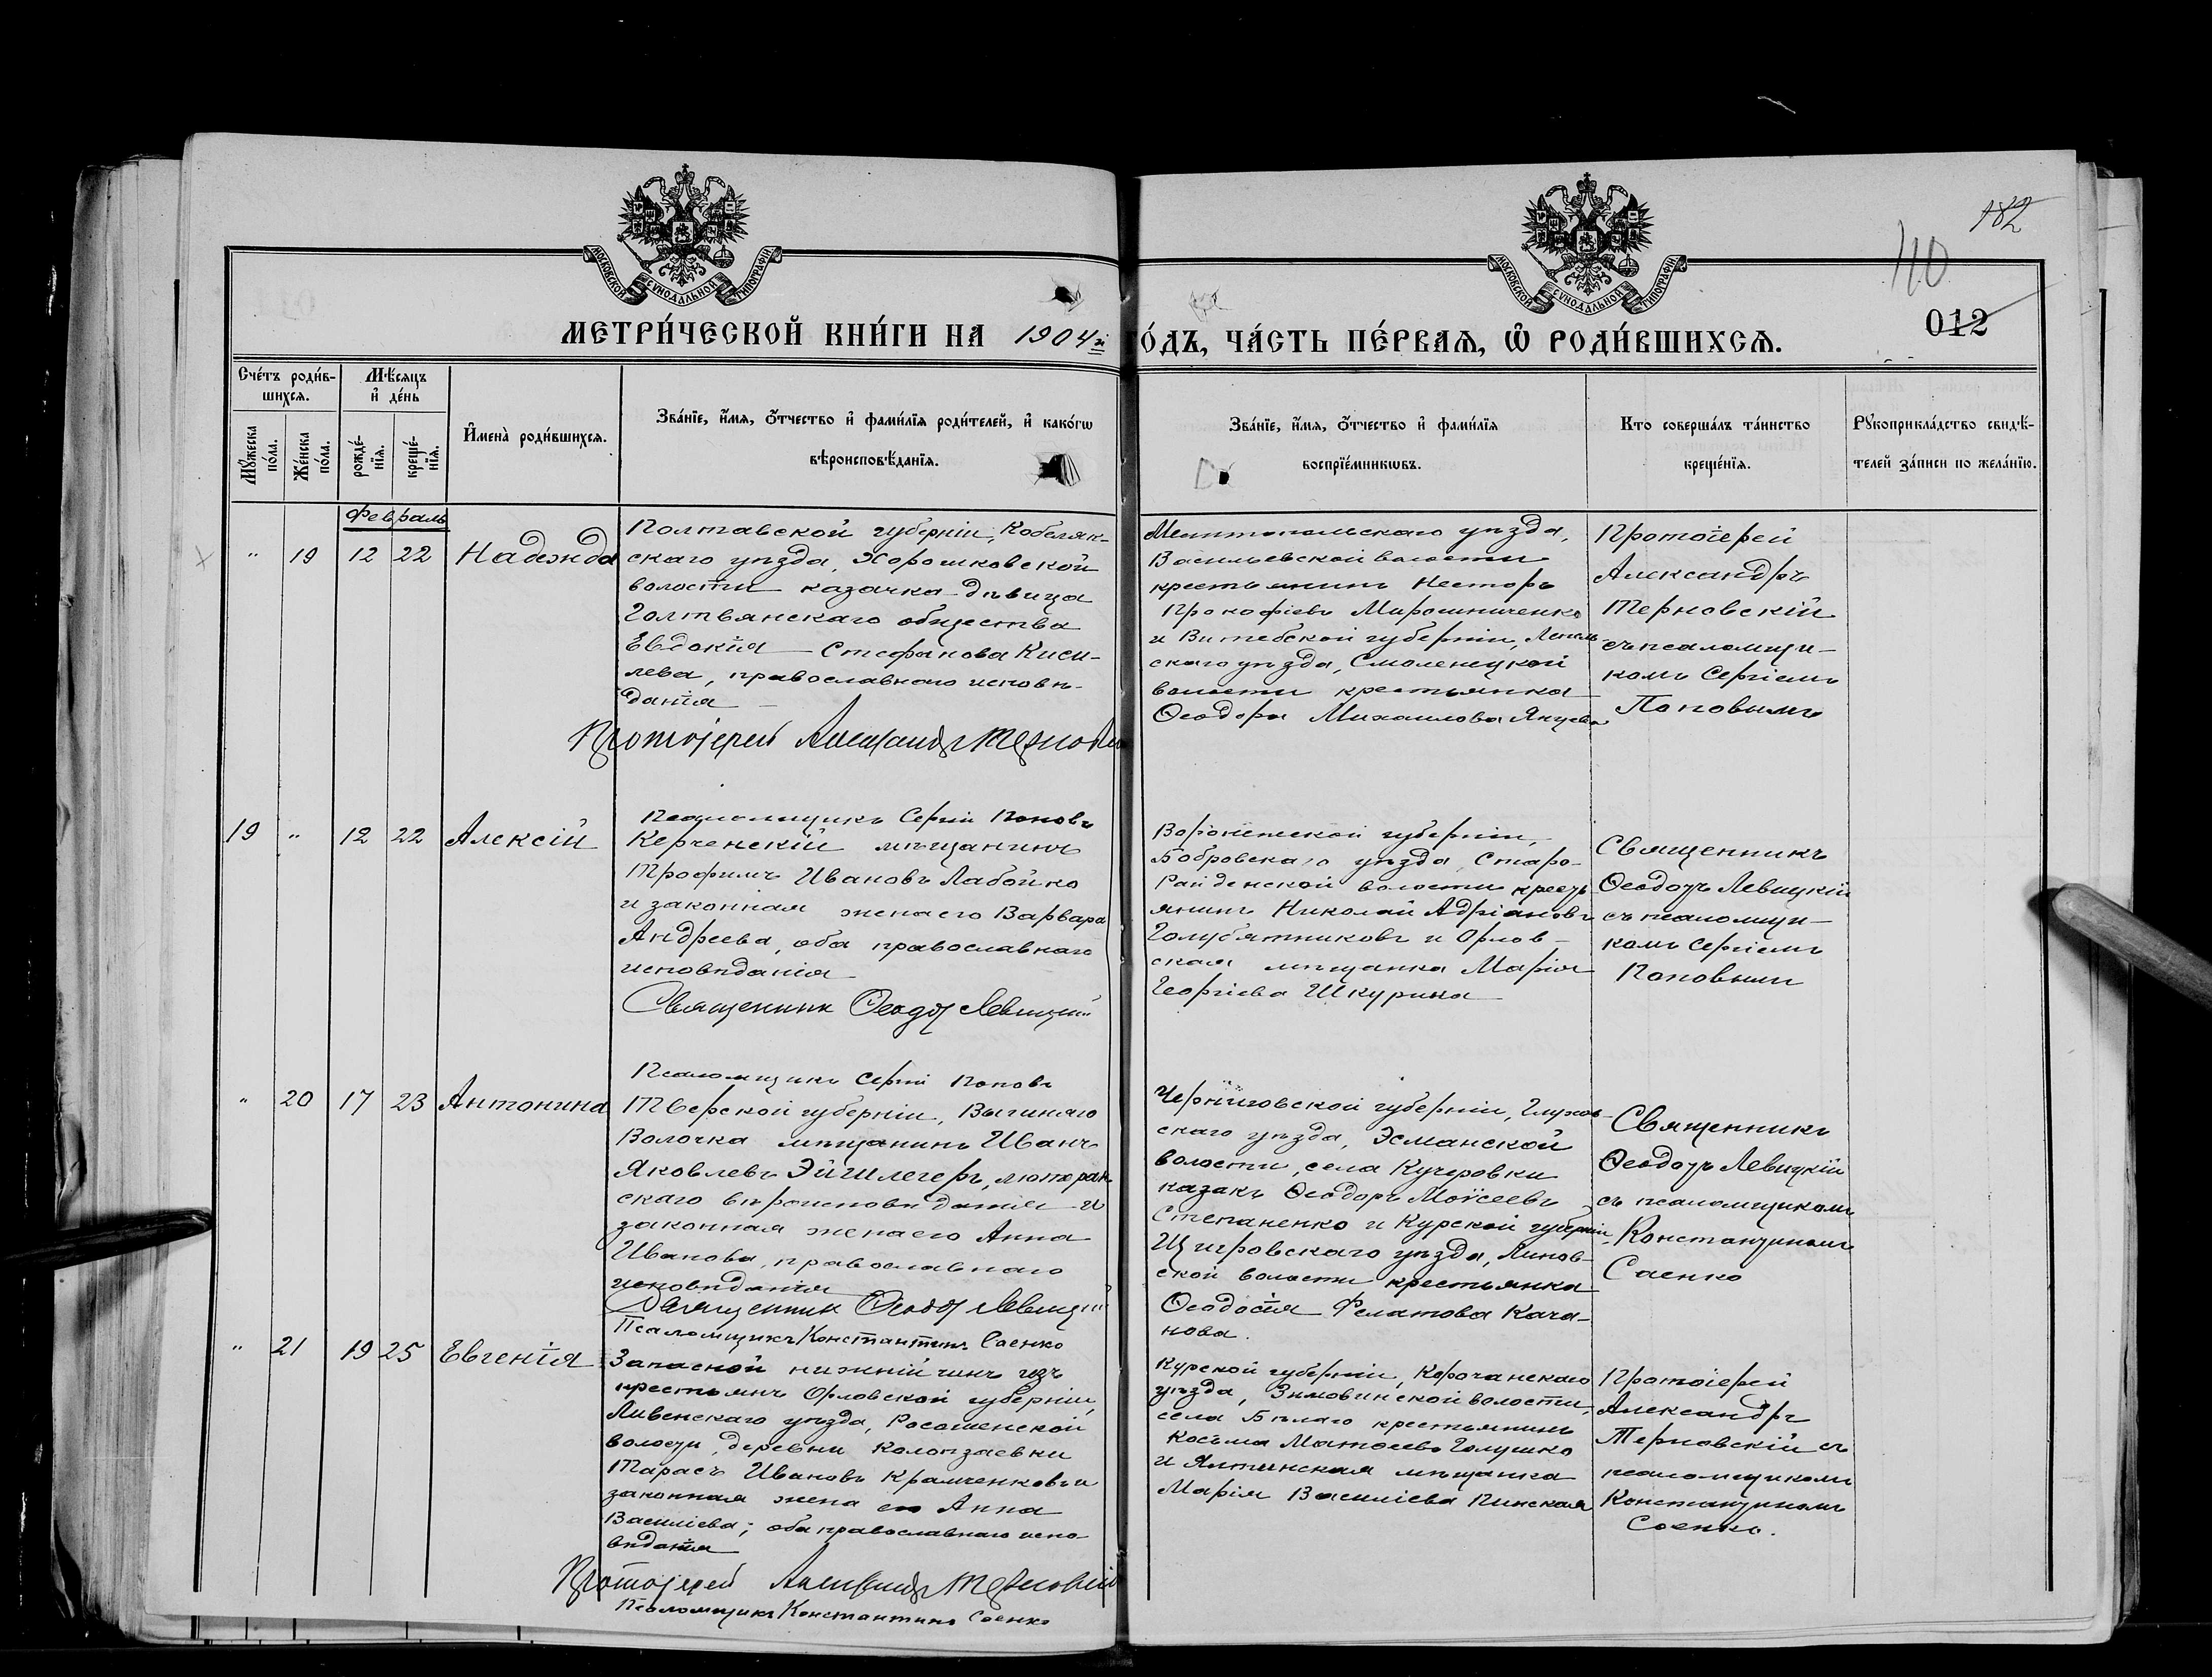 182
110
012
МОСКОВСКОЙ СѴНОДАЛЬНОЙ ТИПОГРАФІИ
МОСКОВСКОЙ СѴНОДАЛЬНОЙ ТИПОГРАФІИ
МЕТРИ́ЧЕСКОЙ КНИ́ГИ НА 1904й
ГО́ДЪ, ЧА́СТЬ ПЕ́РВАѦ, Ѽ РОДИ́ВШИХСѦ.
Сче́тъ роди́в-
шихсѧ.
Мꙋ́жеска по́ла.
Же́нска по́ла.
Мѣ́сѧцъ и҆ де́нь
рожде́-
нїѧ.
креще́-
нїѧ.
И҆мена̀ роди́вшихсѧ.
Зва́нїе, и҆́мѧ, ѻ҆́тчество и҆ фами́лїѧ роди́телей, и҆ како́гѡ
вѣроисповѣ́данїѧ.
Зва́нїе, и҆́мѧ, ѻ҆́тчество и҆ фами́лїѧ
воспрїе́мникѡвъ.
Кто соверша́лъ та́инство
креще́нїѧ.
Рꙋкоприкла́дство свидѣ́-
телей за́писи по жела́нїю.
Февраль
" 19 12 22 Надежда
Полтавской губерніи, Кобеляк-
скаго уѣзда, Хорошковской
волости казачка-дѣвица
Голтвянскаго общества
Евдокія Стефанова Киси-
лева, православнаго исповѣ-
данія
Протоіерей Александр Терновскій
Псаломщикъ Сергій Поповъ
Мелитопольскаго уѣзда,
Васильевской волости
крестьянинъ Несторъ
Прокофіевъ Мирошниченко
и Витебской губерніи, Лепель-
скаго уѣзда, Смоленецкой
волости крестьянка
Ѳеодора Михаилова Янцева
Протоіерей
Александръ
Терновскій
съ псаломщи-
комъ Сергіемъ
Поповымъ
19 " 12 22 Алексій
Керченскій мѣщанинъ
Трофимъ Ивановъ Лабойко
и законная жена его Варвара
Андреева, оба православнаго
исповѣданія
Священник Ѳеодор Левицкій
Псаломщикъ Сергій Поповъ
Воронежской губерніи,
Бобровскаго уѣзда, Старо-
волости кресть-
янинъ Николай Адріановъ
Голубятниковъ и Орлов-
ская мѣщанка Марія
Георгіева Шкурина
Священникъ
Ѳеодоръ Левицкій
съ псаломщи-
комъ Сергіемъ
Поповымъ
" 20 17 23 Антонина
Тверской губерніи, Вышняго
Волочка мѣщанинъ Иванъ
Яковлевъ Эйшлегеръ, лютеран-
скаго вѣроисповѣданія и
законная жена его Анна
Иванова, православнаго
исповѣданія
Священник Ѳеодор Левицкій
Псаломщикъ Константинъ Саенко
Черниговской губерніи, Глухов-
скаго уѣзда, Эсманской
волости, села Кучеровки
казакъ Ѳеодоръ Моѵсеевъ
Степаненко и Курской губерніи
Щигровскаго уѣзда, Липов-
ской волости крестьянка
Ѳеодосія Филатова Кача-
нова.
Священникъ
Ѳеодоръ Левицкій
съ псаломщикомъ
Константиномъ
Саенко
" 21 19 25 Евгенія
Запасной нижній чинъ изъ
крестьянъ Орловской губерніи,
Ливенскаго уѣзда, Росошенской
волости, деревни
Тарасъ Ивановъ Крамченковъ и
законная жена его Анна
Василіева; оба православнаго испо-
вѣданія
Протоіерей Александр Терновскій
Псаломщикъ Константинъ Саенко
Курской губерніи, Корочанскаго
уѣзда, Зимовинской волости,
села Бѣлаго крестьянинъ
Косьма Матѳеевъ Голушко
и Ялтинская мѣщанка
Марія Василіева Пинская
Протоіерей
Александръ
Терновскій съ
псаломщикомъ
Константиномъ
Саенко.